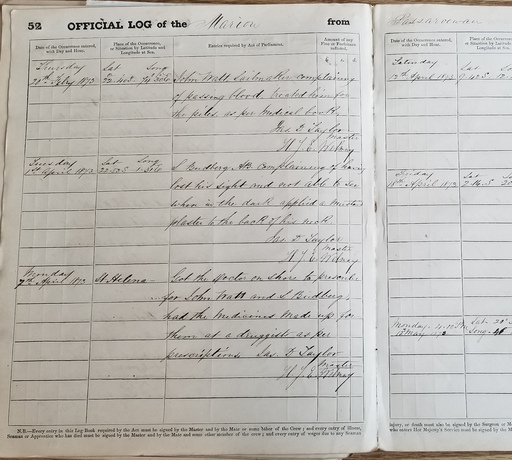 52 OFFICIAL LOG of the Marion from
Date of the Occurrence entered, with Day and Hour.
Place of the Occurrence, or Situation by Latitude and Longitude at Sea.
Entries required by Act of Parliament.
Amount of any Fine or Forfeiture inflicted.
Thursday Lat Long
John Watt Sailmaker Complaining
of passing blood, treated him for
the piles, as per Medical book,
Jas. D. Taylor
Master
Tuesday Lat Long
1st April 1873
S Budberg AB Complaining of having
lost his sight and not able to see
when in the dark applied a mustard
plaster to the back of his neck
Jas. D. Taylor
Master
Monday
7th April 1873 St Helena
Got the Doctor on Shore to prescribe
for John Watt and S Budberg,
had the Medicines Made up for
them at a druggist as per
prescriptions Jas. D. Taylor
Master
N.B.—Every entry in this Log Book required by the Act must be signed by the Master and by the Mate or some other of the Crew; and every entry of illness,
Seaman or Apprentice who has died must be signed by the Master and by the Mate and some other member of the crew; and every entry of wages due to any Seaman
Date of the Occurrence entered, with Day and Hour.
Place of the Occurrence, or Situation by Latitude and Longitude at Sea.
Saturday Lat
12th April 1873
Friday Lat
18th April 1873
Monday Lat
Long
injury, or death must also be signed by the Surgeon or
who enters Her Majesty's Service must be signed by the